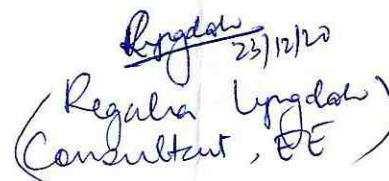 Lyngdoh
23/12/20
(Regalia Lyngdoh)
(Consultant, EE)